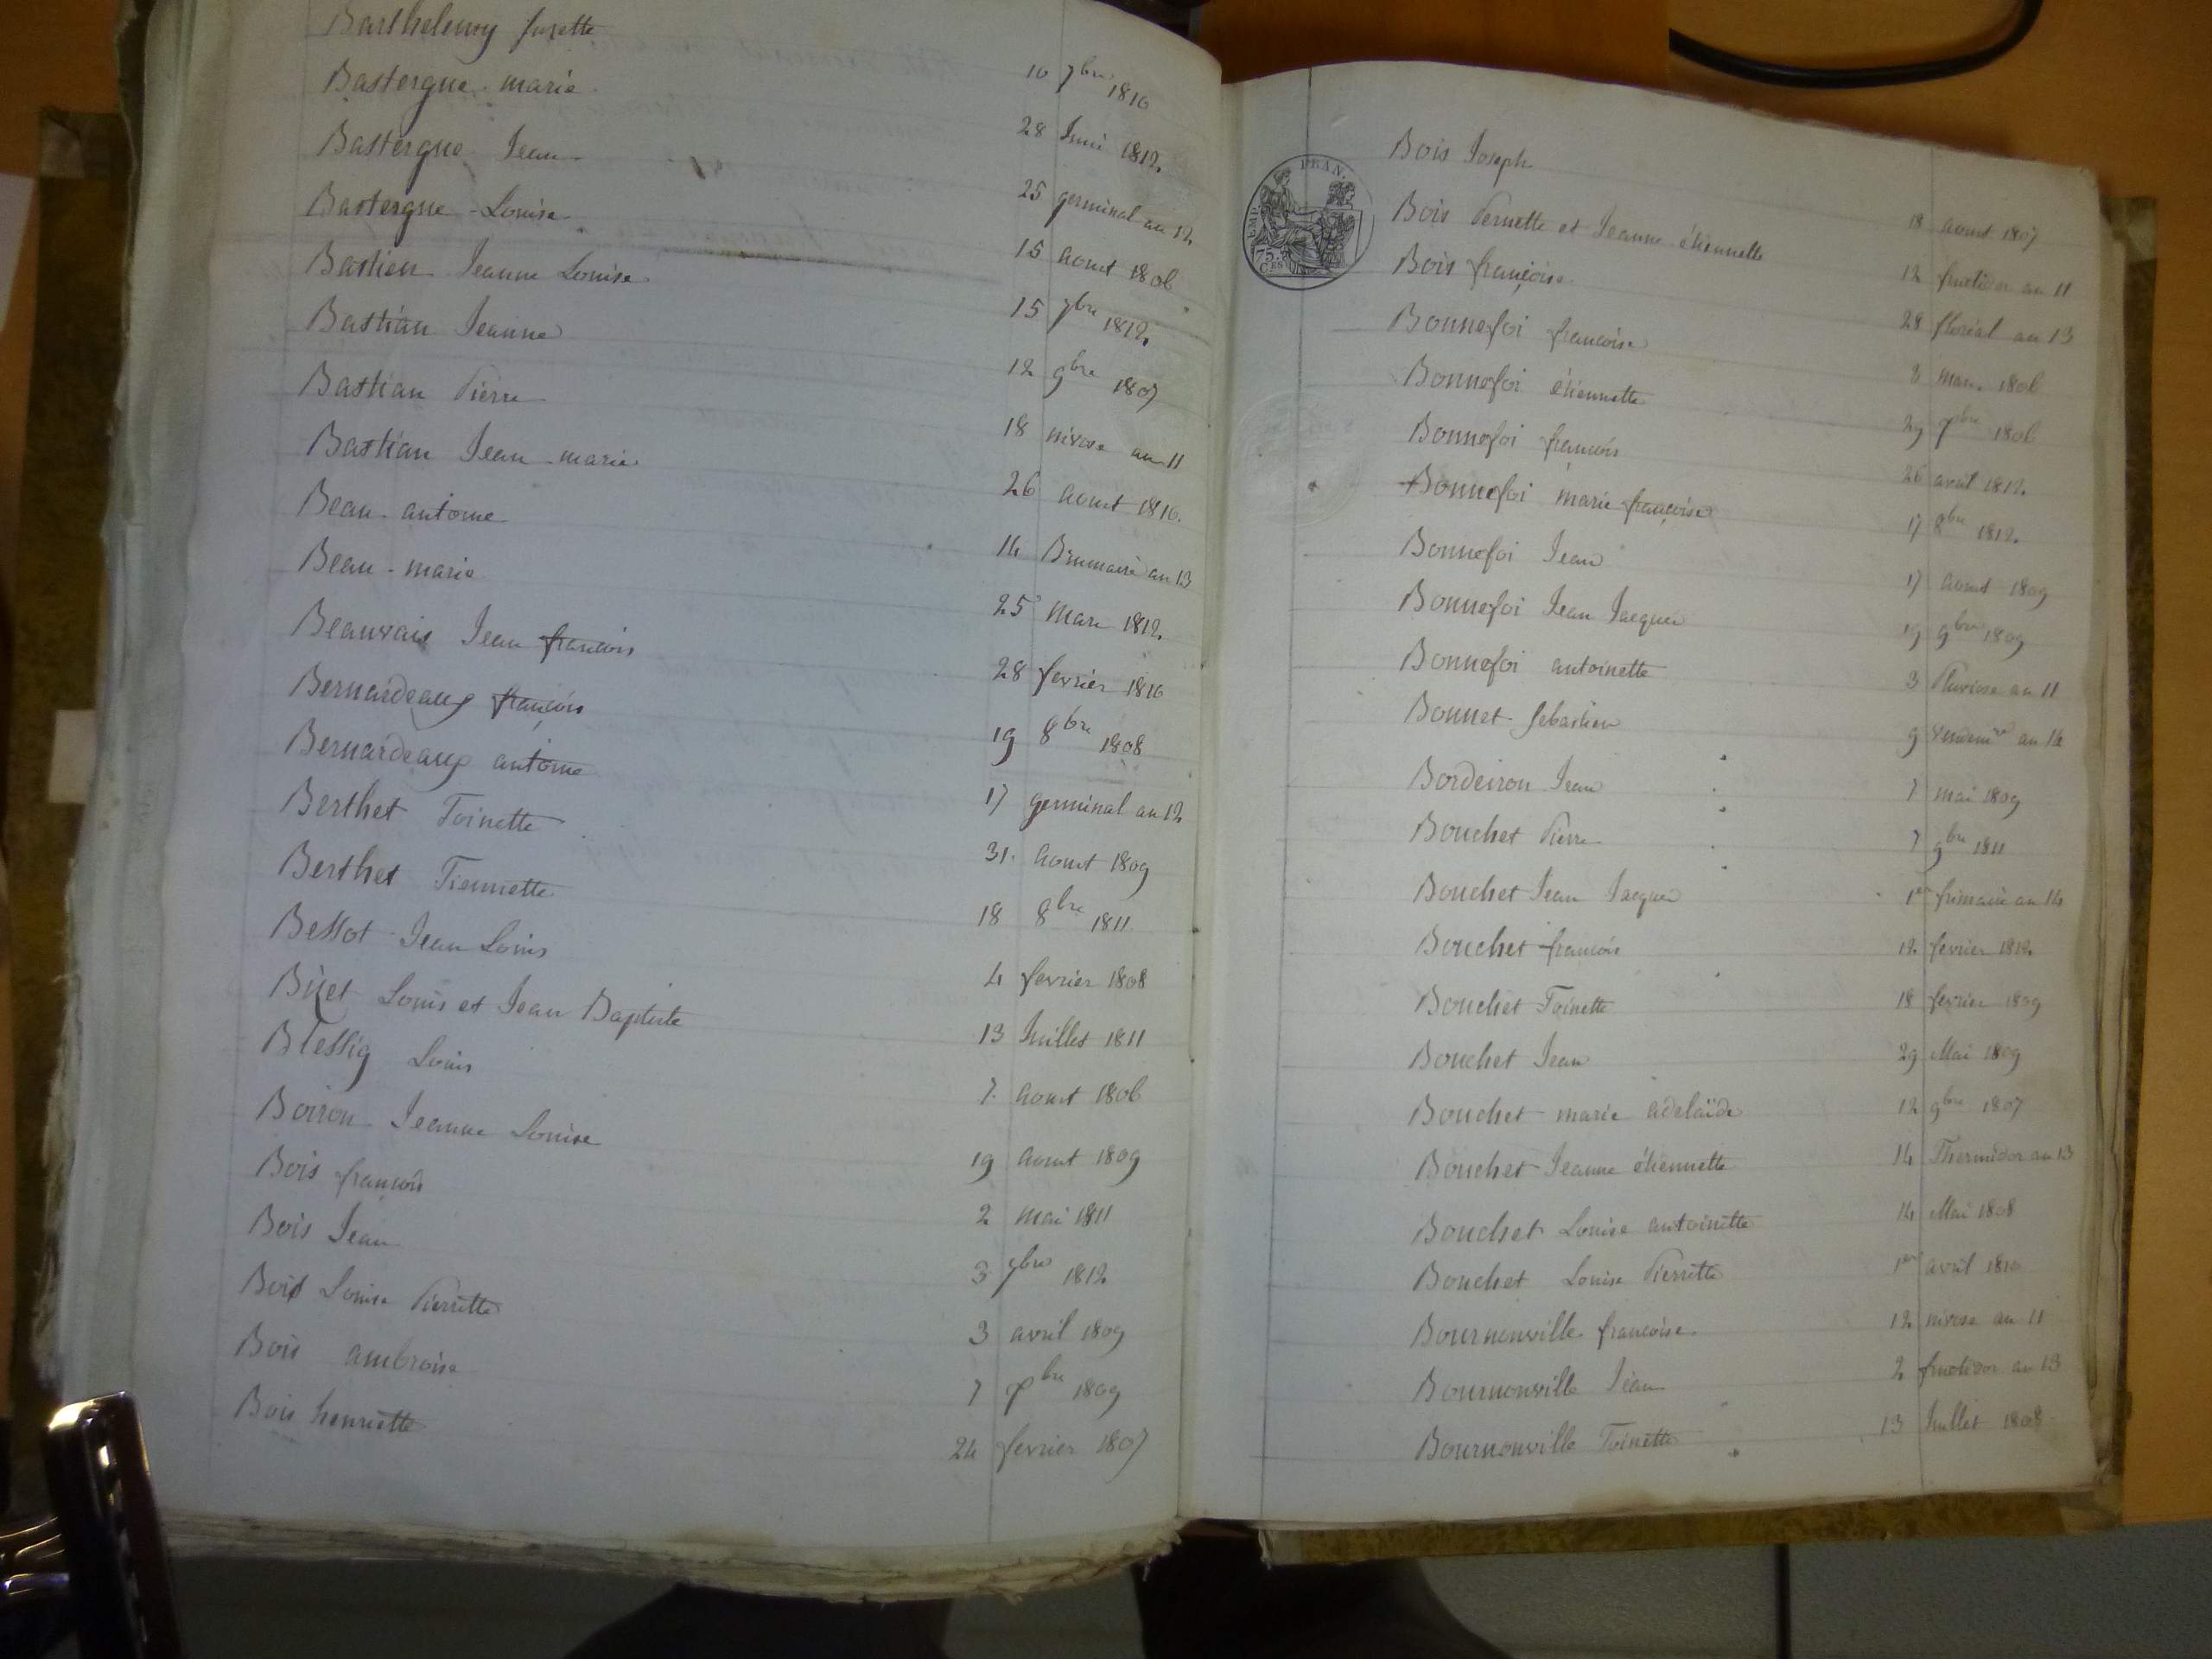 Barthelemy josette 10 7bre 1810
Bastergue marie 28 Juin 1812
Bastergue Jean 25 germinal an 12
Bastergue Louise 15 aout 1806
Bastien Jeanne Louise 15 7bre 1812
Bastian Jeanne 12 9bre 1807
Bastian Pierre 18 nivose an 11
Bastian Jean marie 26 aout 1810
Beau antoine 14 Brumaire an 13
Beau marie 25 mars 1812
Beauvais Jean francois 28 fevrier 1810
Bernardeaux françois 19 8bre 1808
Bernardeaux antoine 17 germinal an 12
Berthet Toinette 31 aout 1809
Berthet Tiennette 18 8bre 1811
Bessot Jean Louis 4 fevrier 1808
Bizet Louis et Jean Baptiste 13 Juillet 1811
Blessig Louis 7 aout 1806
Boiron Jeanne Louise 19 aout 1809
Bois françois 2 mai 1811
Bois Jean 3 7bre 1812
Bois Louise Pierrette 3 avril 1809
Bois ambroise 7 Xbre 1809
Bois henriette 24 fevrier 1807
EMP. FRAN.
75. CES
Bois Joseph 18 aout 1807
Bois Pernette et Jeanne étiennette 12 fructidor an 11
Bois françoise 28 floréal an 13
Bonnefoi francoise 8 mars 1806
Bonnefoi étiennette 29 Xbre 1806
Bonnefoi francois 26 avril 1812
Bonnefoi marie françoise 17 8bre 1812
Bonnefoi Jean 17 aout 1809
Bonnefoi Jean Jacques 19 9bre 1809
Bonnefoi antoinette 3 Pluviose an 11
Bonnet Sebastien 9 an 14
Bordeiron Jean 7 mai 1809
Bouchet Pierre 7 9bre 1811
Bouchet Jean Jacques 1er frimaire an 14
Bouchet francois 12 fevrier 1812
Bouchet Toinette 18 fevrier 1809
Bouchet Jean 29 Mai 1809
Bouchet marie adelaïde 12 9bre 1807
Bouchet Jeanne étiennette 14 Thermidor an 13
Bouchet Louise antoinette 14 Mai 1808
Bouchet Louise Pierrette 1er avril 1810
Bournonville francoise 12 nivose an 11
Bournonville Jean 2 fructidor an 13
Bournonville Toinette 13 Juillet 1808